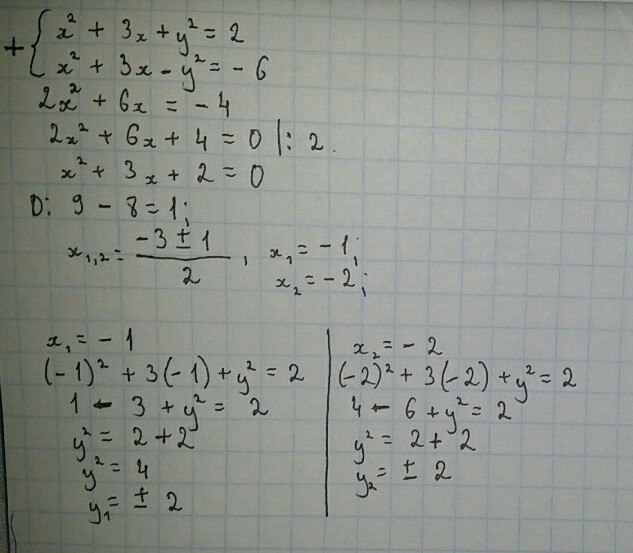 + { x² + 3x + y² = 2
x² + 3x - y² = - 6
2x² + 6x = - 4
2x² + 6x + 4 = 0 |: 2.
x² + 3x + 2 = 0
D: 9 - 8 = 1;
x₁,₂ = (-3 ± 1)/2, x₁ = - 1;
x₂ = - 2;
x₁ = - 1
(-1)² + 3(-1) + y² = 2
1 - 3 + y² = 2
y² = 2 + 2
y² = 4
y₁ = ± 2
x₂ = - 2
(-2)² + 3(-2) + y² = 2
4 - 6 + y² = 2
y² = 2 + 2
y₂ = ± 2